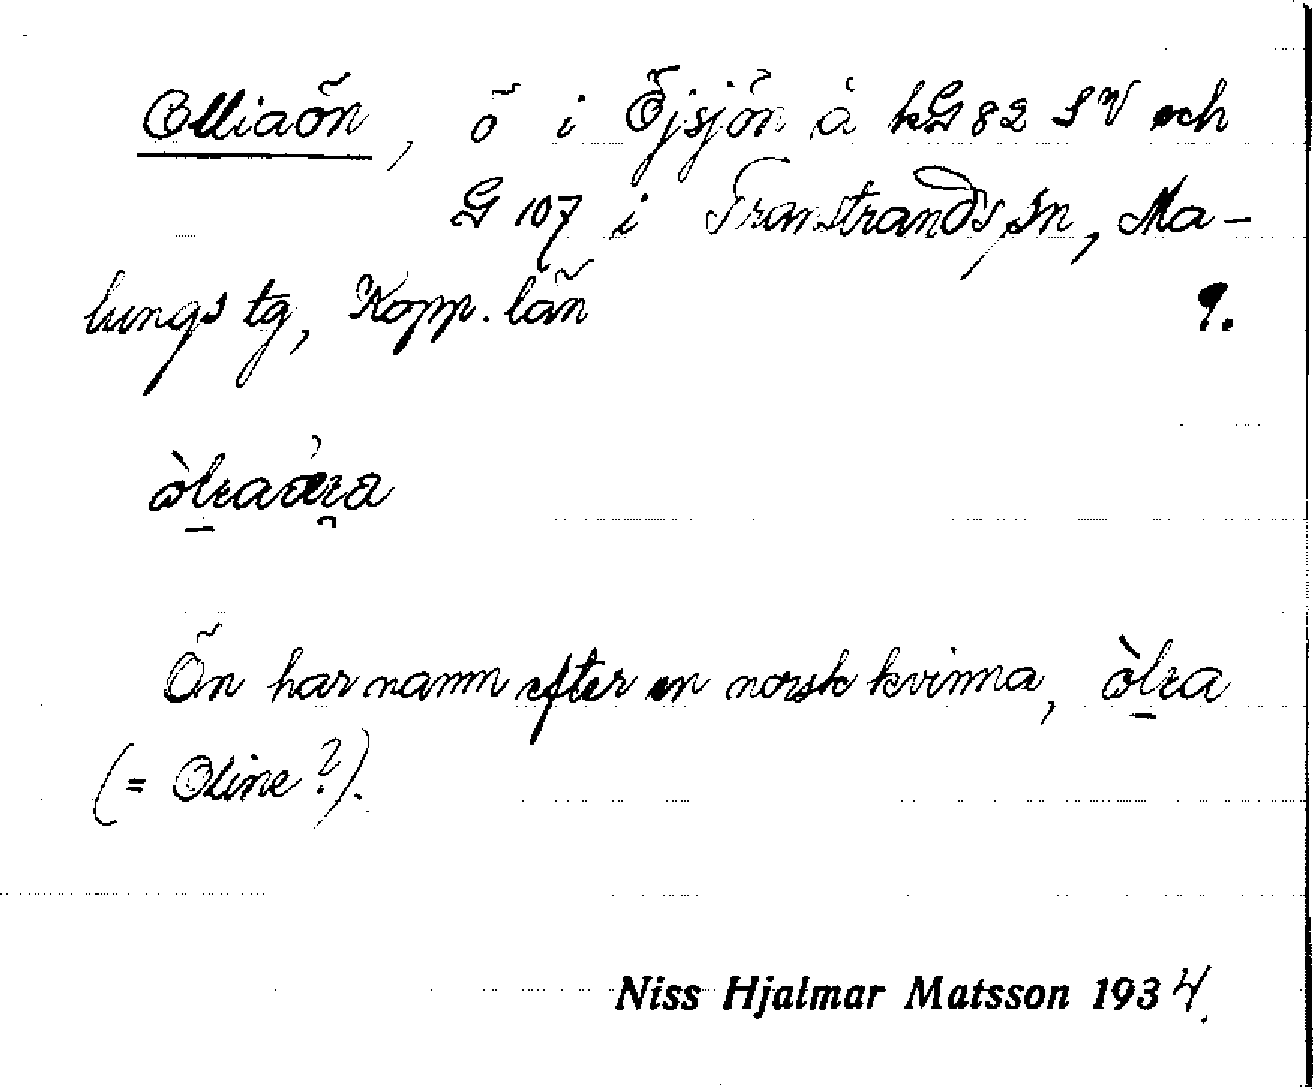 Olliaön, ö i Öjsjön å kG 82 SV och
G 107 i Transtrands sn, Ma-
lungs tg, Kopp. län 9.
Ön har namn efter en norsk kvinna,
(= Oline?).
Niss Hjalmar Matsson 1934.